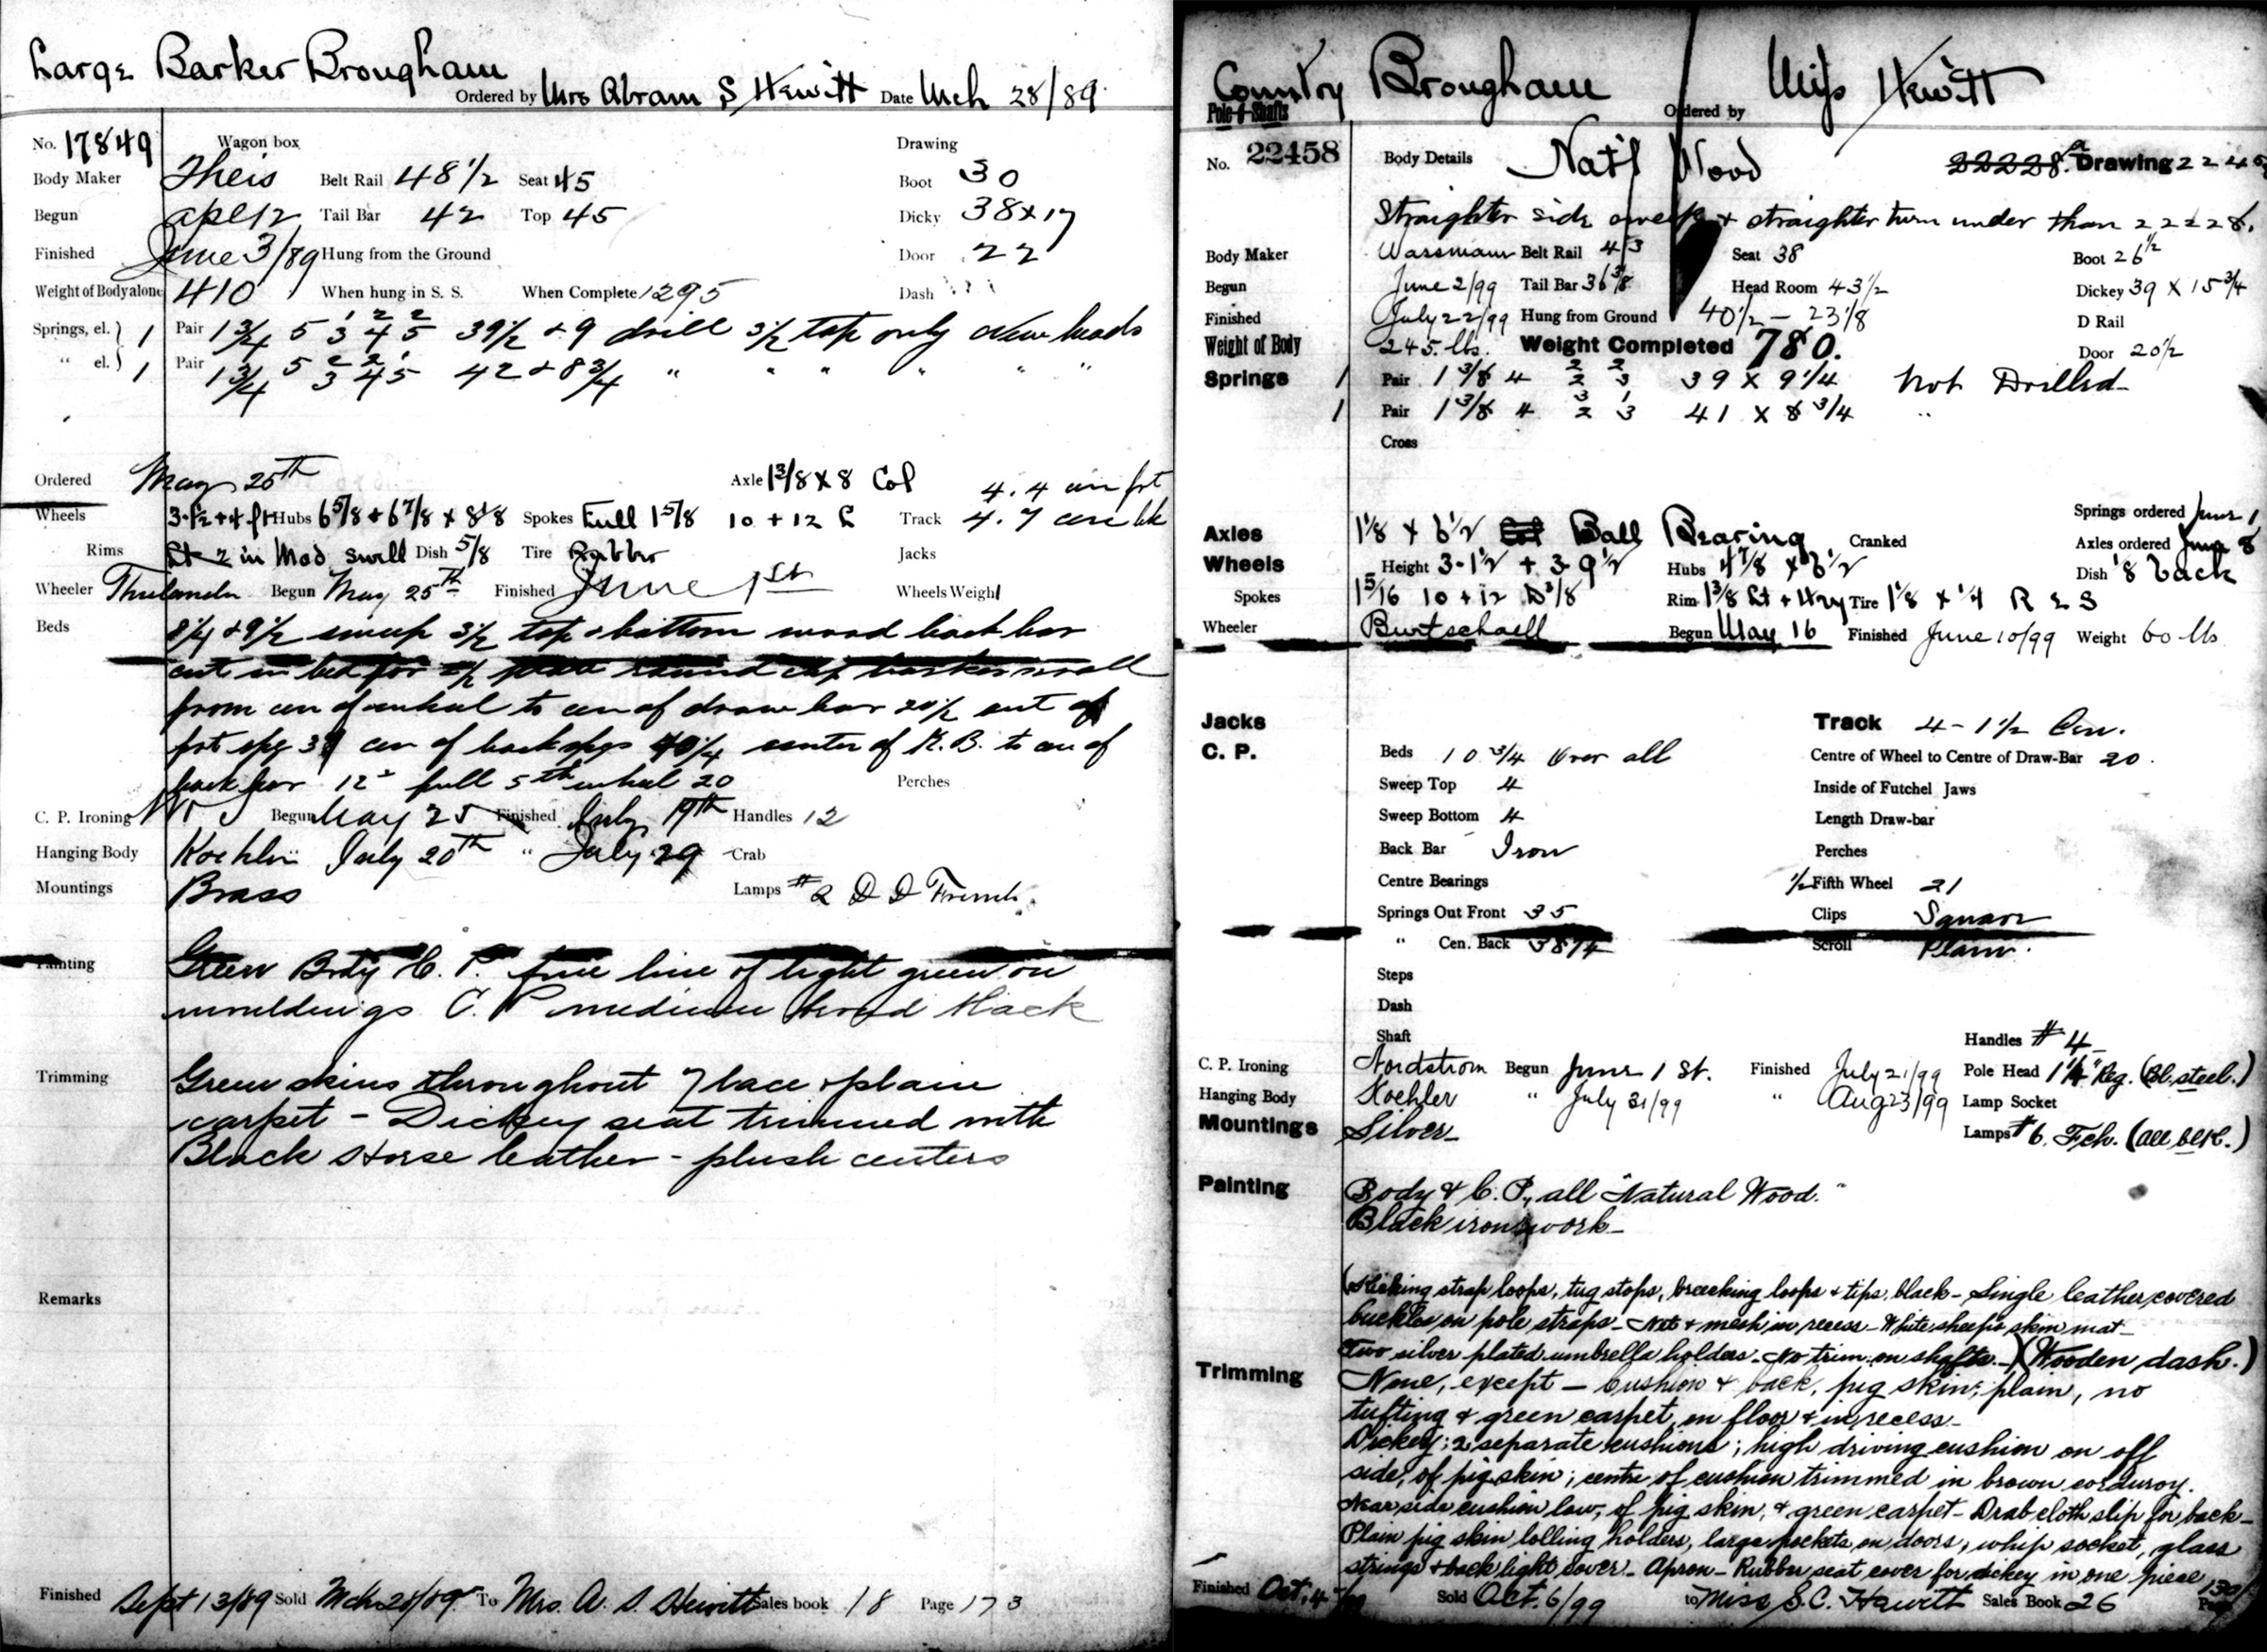 Large Barker Brougham
Ordered by Mrs Abram S Hewitt Date Mch 28/89
No. 17849 Wagon box Drawing
Body Maker Theis Belt Rail 48 1/2 Seat 45 Boot 30
Begun Apl 12 Tail Bar 42 Top 45 Dicky 38 x 17
Finished June 3/89 Hung from the Ground Door 22
Weight of Body alone 410 When hung in S. S. When Complete 1295 Dash
Springs, el. 1 Pair 1 3/4 5 3 4 5 39 1/2 + 9 drill 3 1/2 top only New heads
" el. 1 Pair 1 3/4 5 3 4 5 42 + 8 3/4 " " " " " "
Ordered May 25th Axle 1 3/8 x 8 Col 4.4 cen frt
Wheels 3-1/2 + 4 ft Hubs 6 5/8 + 6 7/8 x 8 1/8 Spokes Full 1 5/8 10 + 12 Track 4.7 cen bk
Rims 2 in Mod swell Dish 5/8 Tire Rubber Jacks
Wheeler Begun May 25th Finished June 1st Wheels Weight
Beds 8 1/4 + 9 1/2 sweep 3 1/2 top + bottom wood back bar
cut in bed for round Barker scroll
from cen of wheel to cen of draw bar 20 1/2 out of
frt spg 37 cen of back spgs 40 1/4 center of K. B. to cen of
back bar 12 full 5th wheel 20 Perches
C. P. Ironing Begun May 25 Finished July 19th Handles 12
Hanging Body Koehler July 20th " July 29 Crab
Mountings Brass Lamps # 2 D D French
Painting Green Body C. P. fine line of light green on
mouldings C. P. medium broad black
Trimming Green skins throughout lace + plain
carpet - Dickey seat trimmed with
Black Horse leather - plush centers
Remarks
Finished Sept 13/89 Sold Mch 28/89 To Mrs. A. S. Hewitt Sales book 18 Page 173
Country Brougham Miss Hewitt
Pole & Shafts Ordered by
No. 22458 Body Details Nat'l Wood 22228. Drawing
Straighter side sweep + straighter turn under than 22228.
Body Maker Wassmann Belt Rail 43 Seat 38 Boot 26 1/2
Begun June 2/99 Tail Bar 36 3/8 Head Room 43 1/2 Dickey 39 x 15 3/4
Finished July 22/99 Hung from Ground 40 1/2 - 23 1/8 D Rail
Weight of Body 245. lbs. Weight Completed 780. Door 20 1/2
Springs 1 Pair 1 3/8 4 2 3 39 x 9 1/4 Not Drilled
1 Pair 1 3/8 4 2 3 41 x 8 3/4 "
Cross
Springs ordered June 1
Axles 1 1/8 x 6 1/2 Ball Bearing Cranked Axles ordered June 8
Wheels Height 3-1 1/2 + 3-9 1/2 Hubs 4 7/8 x 6 1/2 Dish 1/8 back
Spokes 1 5/16 10 + 12 D 3/8 Rim 1 3/8 Tire 1 1/8 x 1/4 R E S
Wheeler Burtschaell Begun May 16 Finished June 10/99 Weight 60 lbs
Jacks Track 4 - 1 1/2 Cen.
C. P. Beds 10 3/4 Over all Centre of Wheel to Centre of Draw-Bar 20.
Sweep Top 4 Inside of Futchel Jaws
Sweep Bottom 4 Length Draw-bar
Back Bar Iron Perches
Centre Bearings 1/2 Fifth Wheel 21
Springs Out Front 35 Clips Square
" Cen. Back 38 1/4 Scroll Plain.
Steps
Dash
Shaft Handles # 4
C. P. Ironing Nordstrom Begun June 1 St. Finished July 21/99 Pole Head 1 1/4" Reg. (Bl. steel.)
Hanging Body Koehler " July 31/99 " Aug 23/99 Lamp Socket
Mountings Silver Lamps # 6. Fch. (all blk.)
Painting Body & C. P., all "Natural Wood."
Black iron work
(Kicking strap loops, tug stops, breeching loops + tips, black - Single leather covered
buckles on pole straps - Net + mesh in recess - White sheep skin mat -
Two silver plated umbrella holders - No trim. on shafts -) (Wooden dash.)
Trimming None, except - Cushion & back, pig skin; plain, no
tufting & green carpet on floor & in recess -
Dickey; 2 separate cushions; high driving cushion on off
side, of pig skin; centre of cushion trimmed in brown corduroy.
Near side cushion low, of pig skin, & green carpet - Drab cloth slip for back -
Plain pig skin lolling holders, large pockets on doors, whip socket, glass
strings + back light cover - Apron - Rubber seat cover for dickey in one piece
Finished Oct. 4/99 Sold Oct. 6/99 to Miss S. C. Hewitt Sales Book 26 Page 130